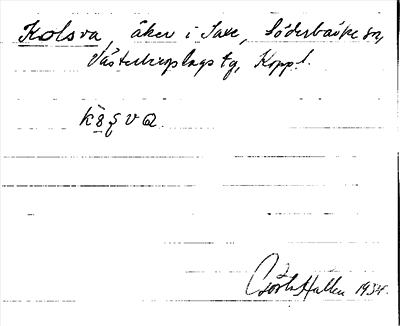 Kolsva, åker i Saxe, Söderbärke sn,
Västerbergslags tg, Koppl.
Gösta Hallén 1934.